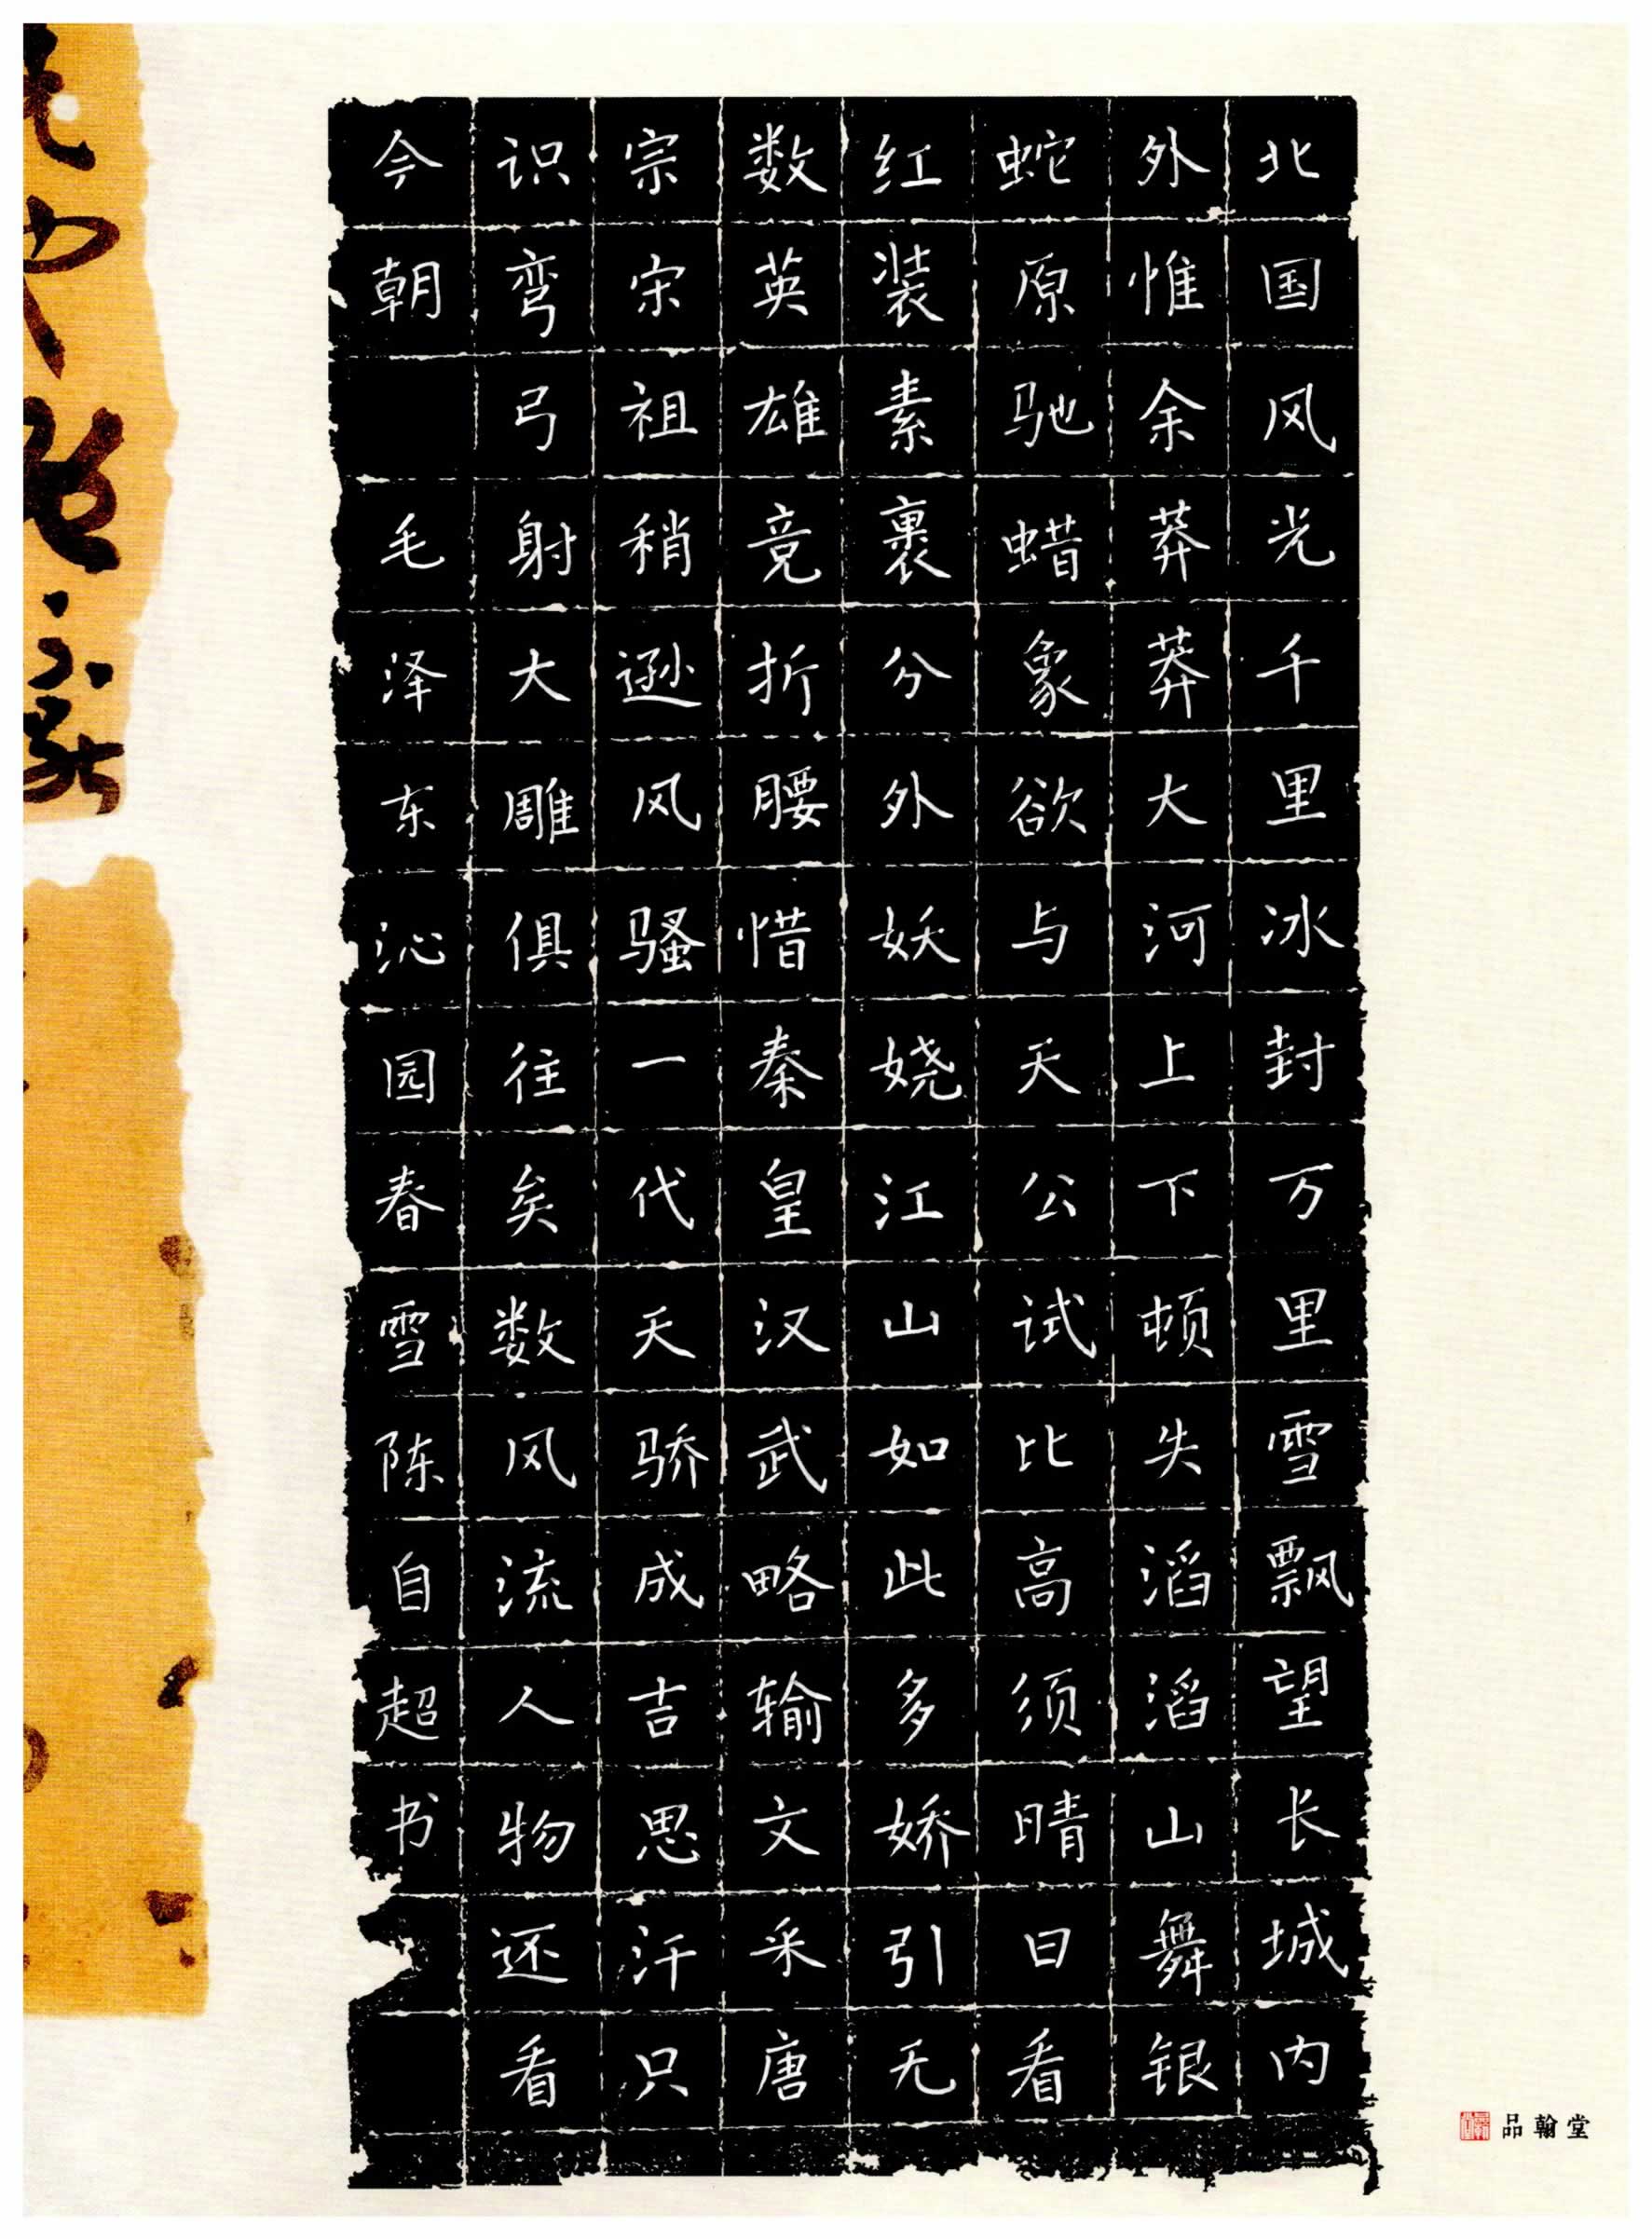 北国风光千里冰封万里雪飘望长城内
外惟余莽莽大河上下顿失滔滔山舞银
蛇原驰蜡象欲与天公试比高须晴日看
红装素裹分外妖娆江山如此多娇引无
数英雄竞折腰惜秦皇汉武略输文采唐
宗宋祖稍逊风骚一代天骄成吉思汗只
识弯弓射大雕俱往矣数风流人物还看
今朝 毛泽东沁园春雪陈自超书
品翰堂